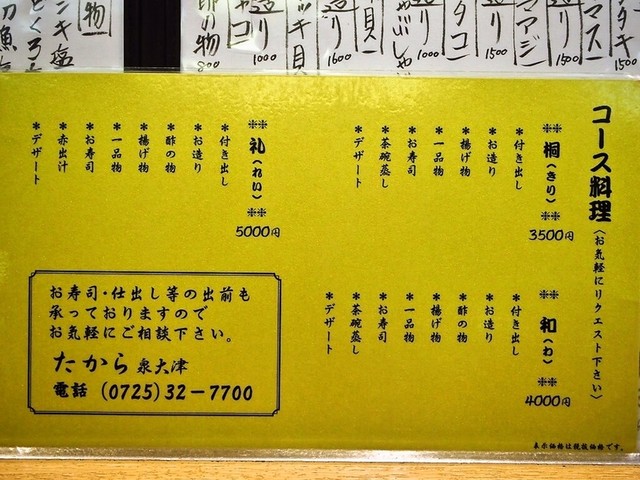 タタキ
1500
マス
造り
1500
アジ
造り
1500
タコ
造り
1000
しゃぶしゃぶ
貝
造り
1600
ツキ貝
造り
1000
コ
卵の物
800
物
ンキ塩
コース料理(お気軽にリクエスト下さい)
※※桐(きり)※※
3500円
*付き出し
*お造り
*揚げ物
*一品物
*お寿司
*茶碗蒸し
*デザート
※※和(わ)※※
4000円
*付き出し
*お造り
*酢の物
*揚げ物
*一品物
*お寿司
*茶碗蒸し
*デザート
※※礼(れい)※※
5000円
*付き出し
*お造り
*酢の物
*揚げ物
*一品物
*お寿司
*赤出汁
*デザート
お寿司・仕出し等の出前も
承っておりますので
お気軽にご相談下さい。
たから 泉大津
電話 (0725)32-7700
表示価格は税抜価格です。